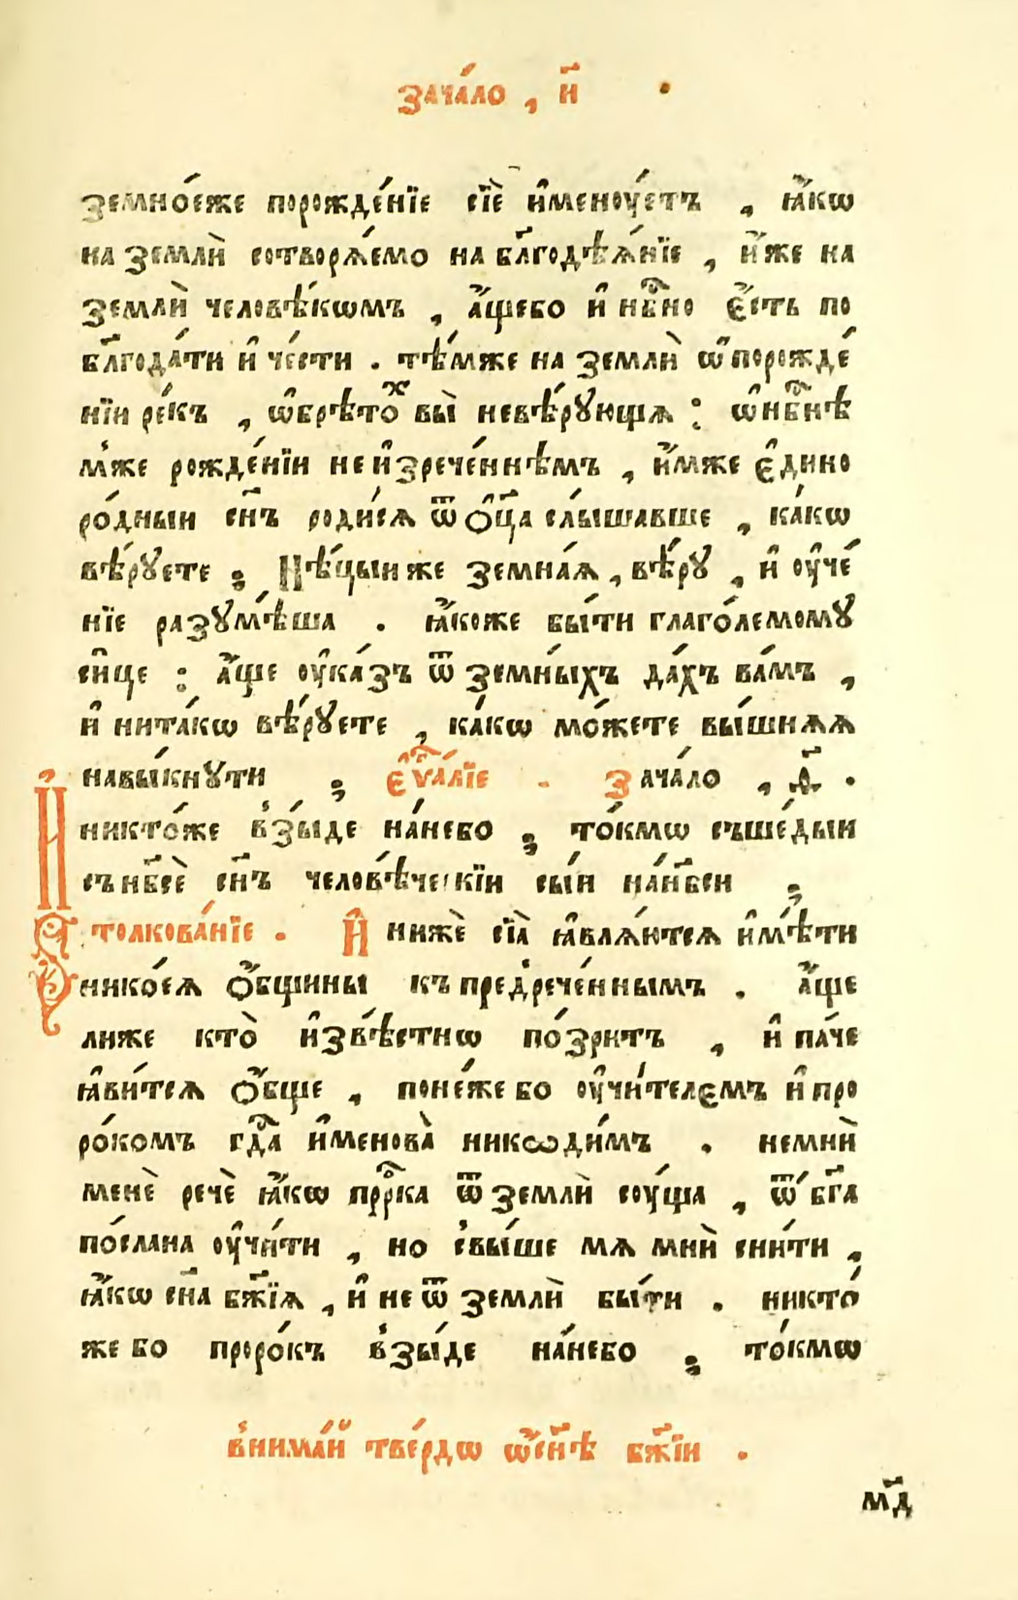 зача́ло , и҃
земно́еже порожде́нїе сїѐ и҆меноу́етъ , ꙗ҆́кѡ
на землѝ сотворѧ́емо на бл҃годѣѧ́нїе , и҆́же на
землѝ человѣ́кѡмъ , а҆́щебо и҆ нб҇но є҆́сть по
бл҃года́ти и҆ че́сти . тѣ́мже на землѝ ѡ҆ порожде́
нїи ре́къ , ѡ҆брѣ́тоⷯ вы̀ невѣ́рꙋющꙗ : ѡ҆ нб҇нѣ
м́же рожде́нїи не и҆зрече́ннѣмъ , и҆́мже є҆дино
ро́дныи сн҃ъ роди́сѧ ѿ ѻ҆ц҃а слы́шавше , ка́кѡ
вѣ́рꙋете ; Нѣ́цыи же земна́ѧ , вѣ́рꙋ , и҆ оу҆че́
нїе разꙋмѣ́ша . ꙗ҆́коже бы́ти глаго́лемомꙋ
си́це : а҆́ще оу҆ка́зъ ѿ земны́хъ да́хъ ва́мъ ,
и҆ нита́кѡ вѣ́рꙋете , ка́кѡ мо́жете вы́шнѧѧ
навы́кнꙋти ; є҆ѵⷢ҇а́лїе . зача́ло , ѳ҃ .
Никто́же взы́де на́небо , то́кмѡ съше́дыи
съ нб҃сѐ сн҃ъ человѣ́ческїи сы́и на́нб҃си ;
толкова́нїе . И҆ нижѐ сїѧ̀ ꙗ҆влѧ́ютсѧ и҆мѣ́ти
никоеѧ́ ѻ҆́бщины къ предрече́ннымъ . а҆́ще
лиже кто̀ и҆звѣ́стнѡ по́зритъ , и҆ па́че
ꙗ҆ви́тсѧ ѻ҆́бще , поне́же бо оу҆чи́телемъ и҆ про
ро́комъ гдⷭ҇а и҆менова̀ никѡди́мъ . немнѝ
менѐ речѐ ꙗ҆́кѡ прⷪ҇рка ѿ землѝ соу́ща , ѿ бг҃а
по́слана оу҆чи́ти , но свы́ше мѧ мнѝ сни́ти ,
ꙗ҆́кѡ сн҃а бж҃їѧ , и҆ не ѿ землѝ бы́ти . никто́
же бо проро́къ взы́де на́небо ; то́кмѡ
внима́й тве́рдѡ ѡ҆ сн҃ѣ бж҃їи .
м҃д